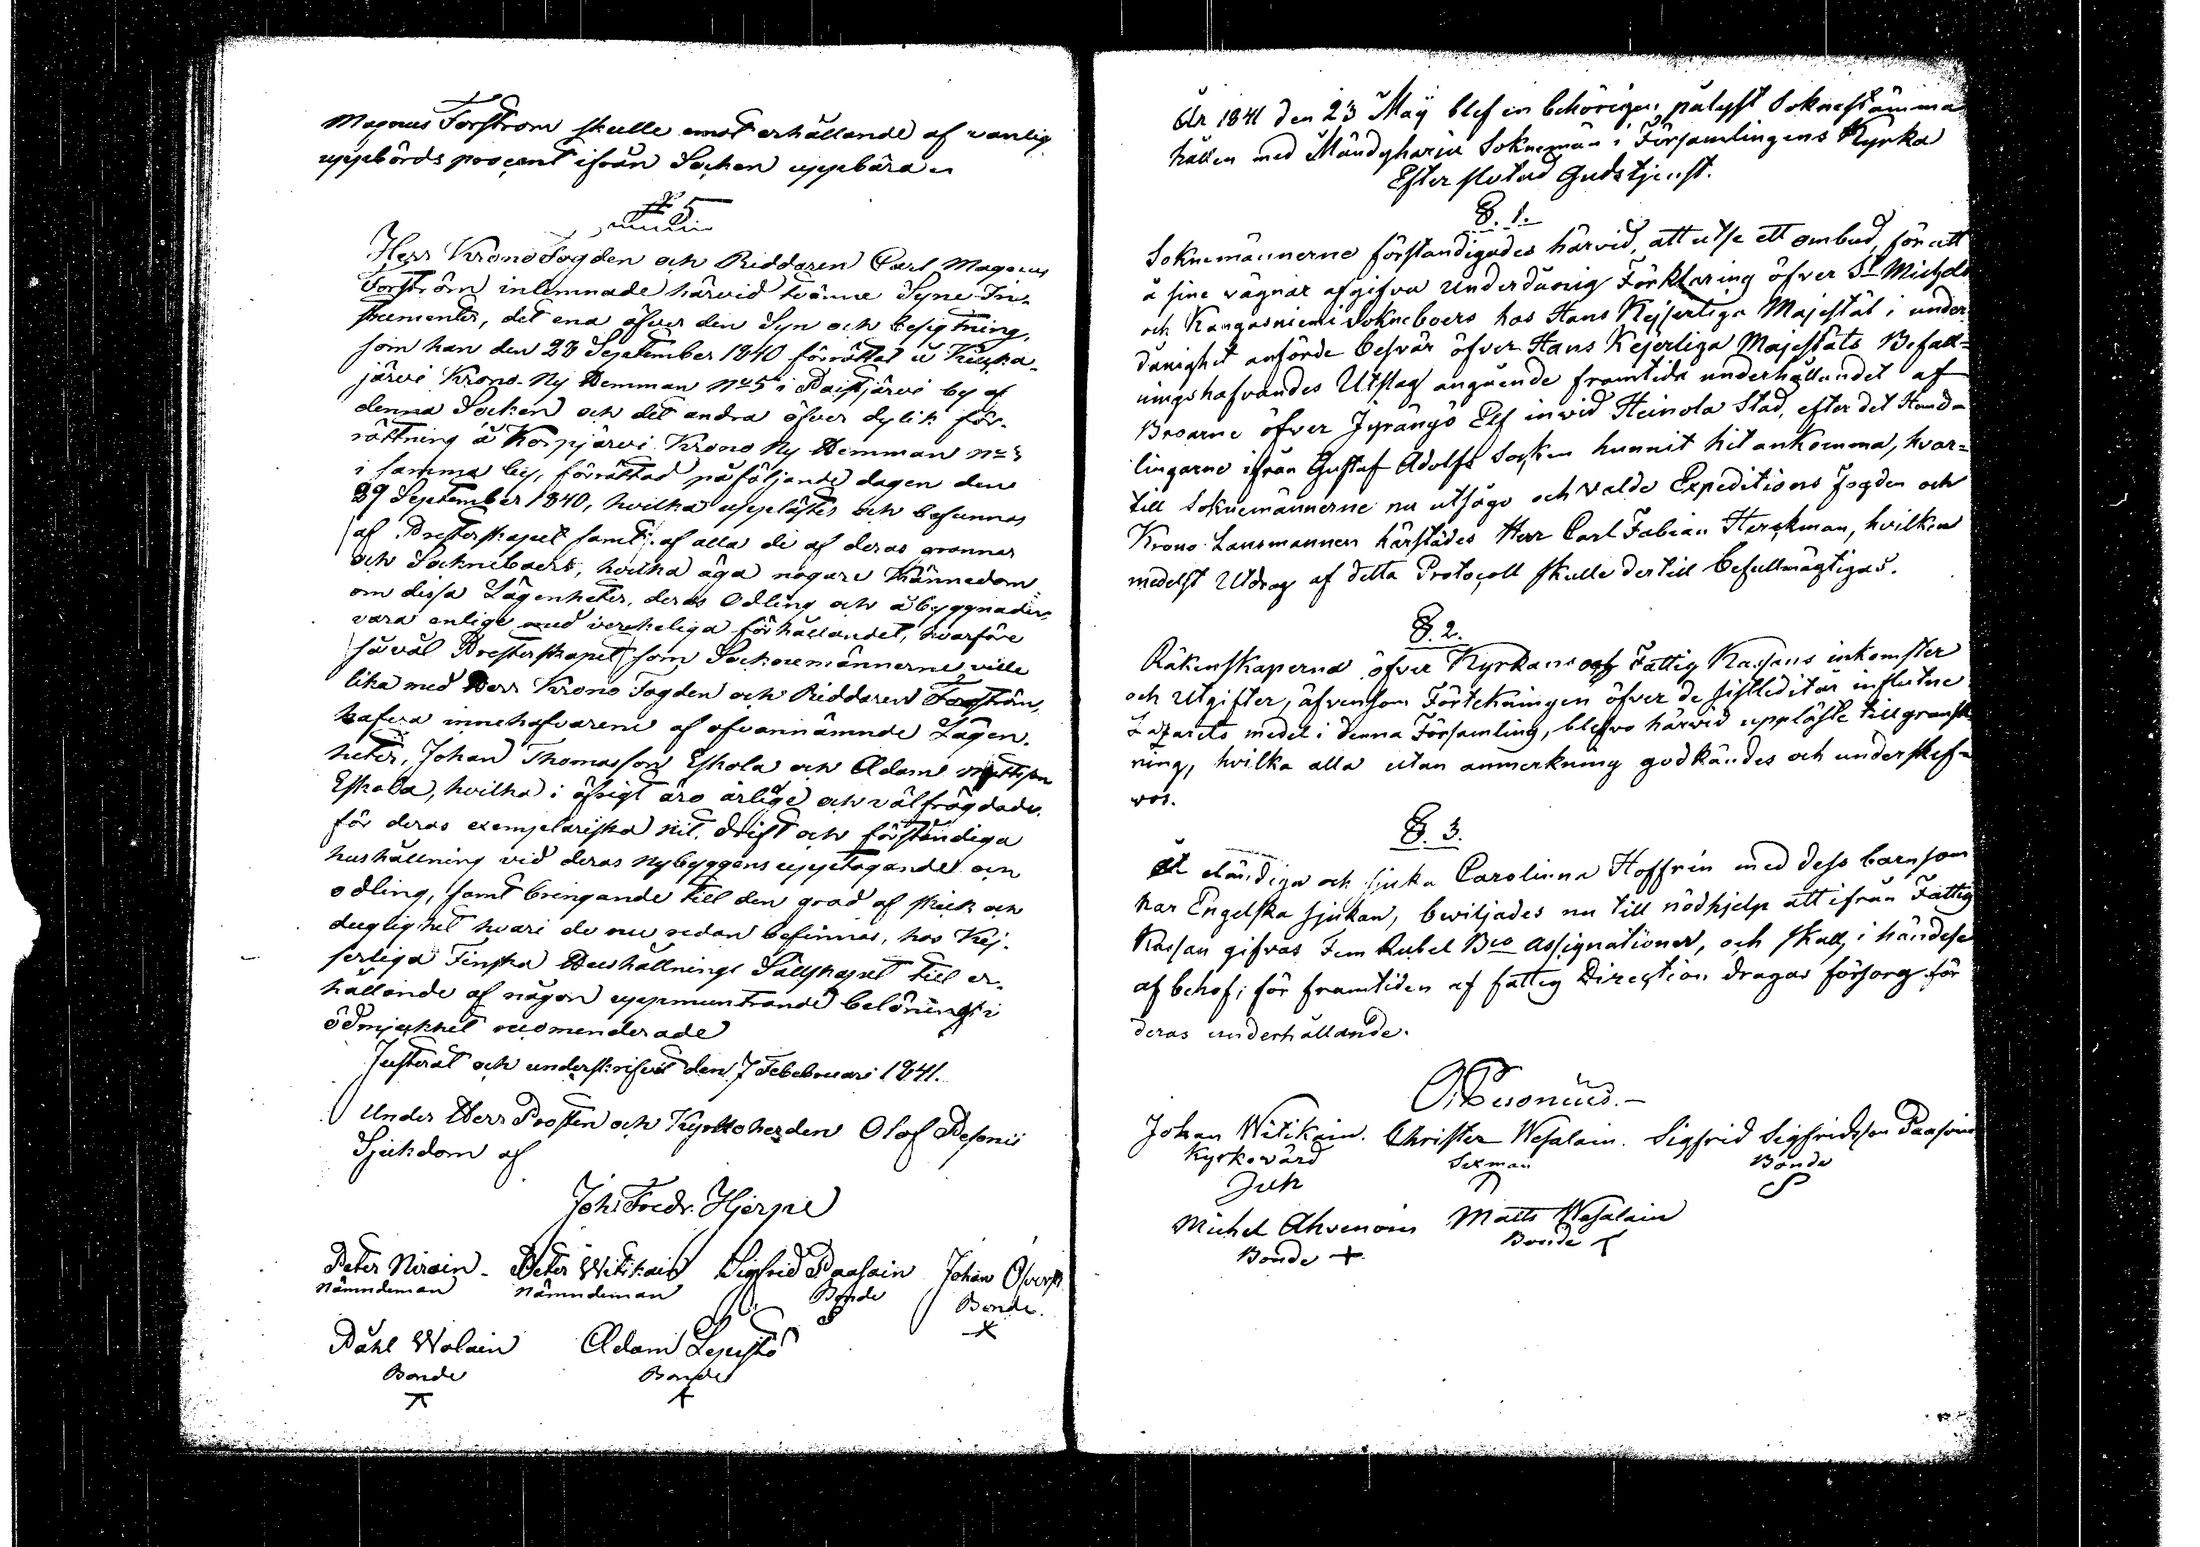 Magnus Forström skulle emot erhållande af vanlig
uppbörds procent ifrån Socken uppbära.
§ 5
Herr KronoFogden och Riddaren Carl Magnus
Forström inlemnade härvid tvänne Syne In-
strumenter, det ena öfver den Syn och besigtning,
som han den 28 September 1840 förrättat å
järvi Krono-Ny Hemman No 5 i by af
denna Socken och det andra öfver dylik för-
rättning å Korpjärvi Krono Ny Hemman No
i samma by, förrättad påföljande dagen den
29 September 1840, hvilka upplästes och befunnos
af Presterskapet samt af alla de af deras grannar
och Sockneboers, hvilka äga nogare kännedom
om dessa Lägenheter, deras Odling och åbyggnader,
vara enlige med verkeliga förhållandet, hvarföre
såväl Presterskapet som Sockenemännerne ville
lika med Herr Krono Fogden och Riddaren Forström,
hafva innehafvarene af ofvannämnde Lägen-
heter, Johan Thomasson Eskola och Adam Mattsson
Eskola, hvilka i öfrigt äro ärlige och välfrägdade,
för deras exemplariska nit, drift och förståndiga
hushållning vid deras nybyggens upptagande och
odling, samt bringande till den grad af skick och
duglighet hvari de nu redan befinnas, hos Kej-
serliga Finska Hushållnings Sällskapet till er-
hållande af någon uppmuntrande belöning i
ödmjukhet recomenderade
Justerat och underskrifvit den 7 Febebruari 1841.
Under Herr Prosten och Kyrkoherden Olof Pesonii
Sjukdom af
Joh: Fredr. Hjerpe
Peter Nirain - Peter Witikain Sigfrid Paasain Johan
Nämndeman Nämndeman Bonde Bonde.
Påhl Wolain Adam Lepistö
Bonde Bonde
År 1841 den 23 Maÿ blef en behörigen pålyst Soknestämma
hållen med Mändyharju Soknemän i Församlingens Kyrka
Efter slutad Gudstjenst.
§. 1.
Soknemännerne förständigades härvid, att utse ett ombud, för att
å sine vägnar afgifva Underdånig Förklaring öfver St Michels
och Kangasniemi Sokneboers hos Hans Kejserliga Majestät i under
dånighet anförde besvär öfver Hans Kejserliga Majestäts Befall-
ningshafvandes Utslag angående framtida underhållandet af
Broarne öfver Jyrängö Elf invid Heinola Stad, efter det Hand-
lingarne ifrån Gustaf Adolfs Socken hunnit hit ankomma, hvar-
till Soknemännerne nu utsågo och valde Expeditions Fogden och
Krono Lansmannen härstädes Herr Carl Fabian Herckman, hvilken
medelst Utdrag af detta Protocoll skulle dertill befullmägtigas.
§. 2.
Räkenskaperna öfver Kyrkans och Fattig Kassans inkomster
och Utgifter, äfvensom Förtekningen öfver de sistledit år influtne
Lazarets medel i denna Församling, blefvo härvid uppläste till gransk
ning, hvilka alla utan anmerkning godkändes och underskef-
vos.
§. 3.
Åt eländiga och sjuka Carolinna Hoffrén med dess barn som
har Engelska sjukan, beviljades nu till nödhjelp att ifrån Fattig
Kassan gifvas Fem Rubel Bco Assignationer, och skall, i händelse
af behof, för framtiden af fattig Direction dragas försorg för
deras underhållande.
O. Pesonius.-
Johan Witikain. Christer Wesalain. Sigfrid Sigfridsson
Kyrkovärd Sexman Bonde
Michel Ahvenain Matts Wesalain
Bonde Bonde